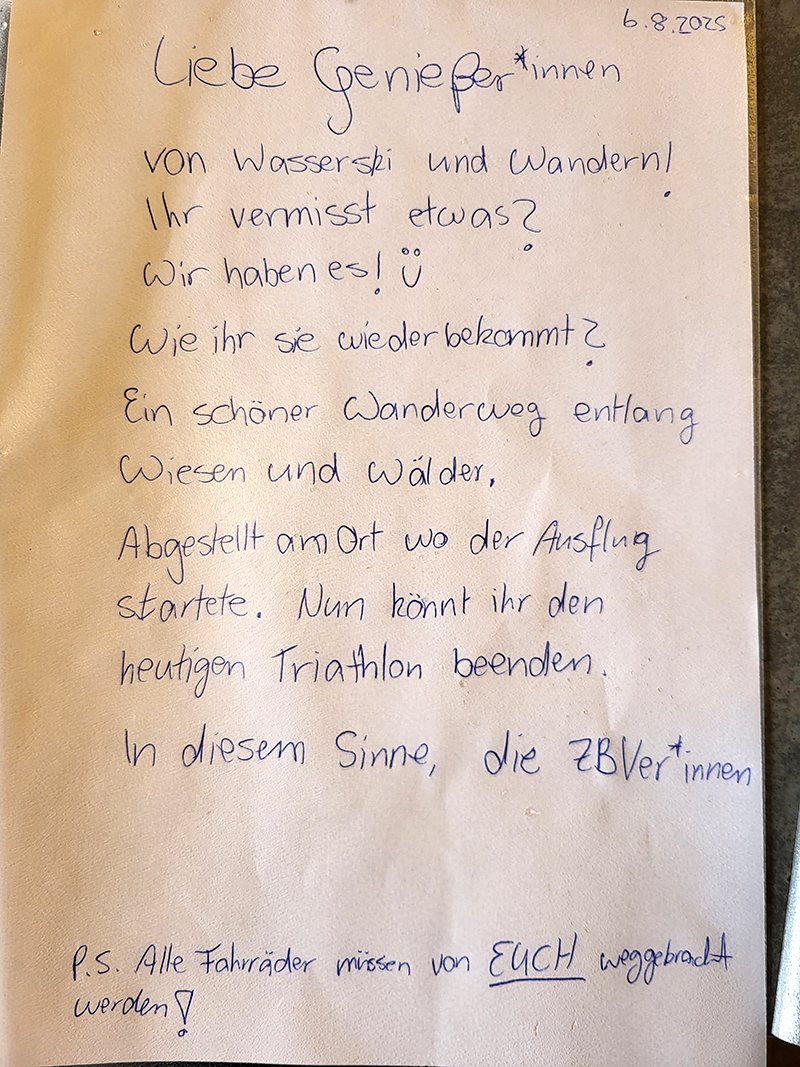 6.8.2025
Liebe Genießer*innen
von Wasserski und Wandern!
Ihr vermisst etwas?
Wir haben es! Ü
Wie ihr sie wiederbekommt?
Ein schöner Wanderweg entlang
Wiesen und Wälder,
Abgestellt am Ort wo der Ausflug
startete. Nun könnt ihr den
heutigen Triathlon beenden.
In diesem Sinne, die ZBVer*innen
P.S. Alle Fahrräder müssen von EUCH weggebracht
werden!